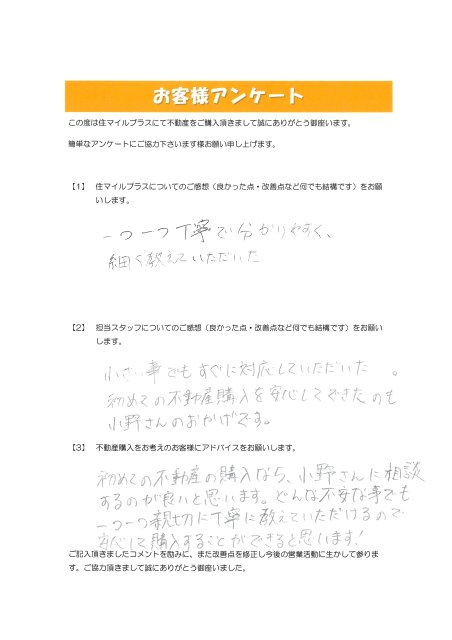 お客様アンケート
この度は住マイルプラスにて不動産をご購入頂きまして誠にありがとう御座います。
簡単なアンケートにご協力下さいます様お願い申し上げます。
【1】 住マイルプラスについてのご感想（良かった点・改善点など何でも結構です）をお願
いします。
一つ一つ丁寧で分かりやすく、
細く教えていただいた
【2】 担当スタッフについてのご感想（良かった点・改善点など何でも結構です）をお願い
します。
小さい事でもすぐに対応していただいた 。
初めての不動産購入を安心してできたのも
小野さんのおかげです。
【3】 不動産購入をお考えのお客様にアドバイスをお願いします。
初めての不動産の購入なら、小野さんに相談
するのが良いと思います。どんな不安な事でも
一つ一つ親切に丁寧に教えていただけるので
安心して購入することができると思います!
ご記入頂きましたコメントを励みに、また改善点を修正し今後の営業活動に生かして参りま
す。ご協力頂きまして誠にありがとう御座いました。